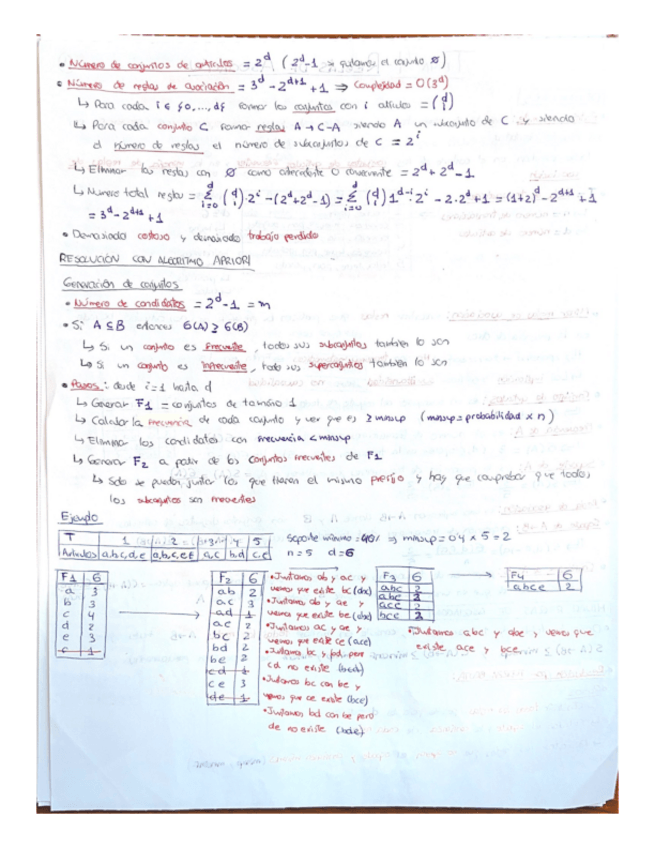 • Número de conjuntos de artículos = 2^d (2^d-1 si quitamos el conjunto ∅)
• Número de reglas de asociación = 3^d - 2^d+1 + 1 ⇒ Complejidad = O(3^d)
↳ Para cada i ∈ {0,...,d} formar los conjuntos con i artículos = (d i)
↳ Para cada conjunto C formar reglas A → C-A siendo A un subconjunto de C y siendo
el número de reglas el número de subconjuntos de C = 2^i
↳ Eliminar las reglas con ∅ como antecedente o consecuente = 2^d + 2^d - 1.
↳ Número total reglas = Σ (d i)·2^i - (2^d+2^d-1) = Σ (d i) 1^d-i · 2^i - 2·2^d + 1 = (1+2)^d - 2^d+1 + 1
= 3^d - 2^d+1 + 1
• Demasiado costoso y demasiado trabajo perdido
RESOLUCIÓN CON ALGORITMO APRIORI
Generación de conjuntos
• Número de candidatos = 2^d - 1 = m
• Si A ⊆ B entonces σ(A) ≥ σ(B)
↳ Si un conjunto es frecuente, todos sus subconjuntos también lo son
↳ Si un conjunto es infrecuente, todos sus superconjuntos también lo son
• Pasos: desde i=1 hasta d
↳ Generar F1 = conjuntos de tamaño 1
↳ Calcular la frecuencia de cada conjunto y ver que es ≥ minsup (minsup = probabilidad x n)
↳ Eliminar los candidatos con frecuencia < minsup
↳ Generar F2 a partir de los conjuntos frecuentes de F1
↳ Solo se pueden juntar los que tienen el mismo prefijo y hay que comprobar que todos
los subconjuntos son frecuentes
Ejemplo
T 1 2 3 4 5
Artículos a,b,c,d,e a,b,c,e,f a,c b,d c,e
Soporte mínimo = 40% ⇒ minsup = 0.4 x 5 = 2
n=5 d=6
F1 σ
a 3
b 3
c 4
d 2
e 3
f 1
F2 σ
ab 2
ac 3
ad 1
ae 2
bc 2
bd 2
be 2
cd 1
ce 3
de 1
• Juntamos ab y ac y
vemos que existe bc (abc)
• Juntamos ab y ae y
vemos que existe be (abe)
• Juntamos ac y ae y
vemos que existe ce (ace)
• Juntamos bc y bd pero
cd no existe (bcd)
• Juntamos bc con be y
vemos que ce existe (bce)
• Juntamos bd con be pero
de no existe (bde)
F3 σ
abc 2
abe 2
ace 2
bce 2
F4 σ
abce 2
• Juntamos abc y abe y vemos que
existe ace y bce